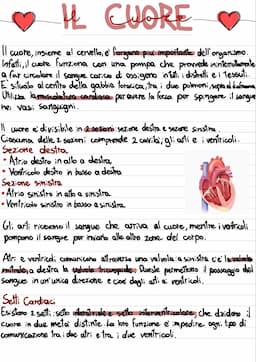 IL CUORE
Il cuore, insieme al cervello, è l'organo piu importante dell'organismo.
Infatti, il cuore funziona con una pompa che provvede ininterrottamente
a far circolare il sangue carico di ossigeno in tutti i distretti e i tessuti.
E situato al centro della gabbia toracica, tra i due polmoni, sopra al diaframma.
Utilizza la muscolatura cardiaca per avere la forza per spingere il sangue
nei vasi sanguigni.
Il cuore e divisibile in 2 sezioni: sezione destra e sezione sinistra.
Ciascuna delle 2 sezioni comprende 2 cavità, gli atri e i ventricoli.
Sezione destra
• Atrio destro in alto a destra
• Ventricolo destro in basso a destra
Sezione sinistra
• Atrio sinistro in alto a sinistra
• Ventricolo sinistro in basso a sinistra.
Gli atri ricevono il sangue che arriva al cuore, mentre i ventricoli
pompano il sangue per inviarlo alle altre zone del corpo.
Atri e ventricoli comunicano attraverso una valvola: a sinistra c'è la valvola
mitrale, a destra la valvola tricuspide. Queste permettono il passaggio del
sangue in un'unica direzione e cioè dagli atri ai ventricoli.
Setti Cardiaci
Esistono 2 setti: setto interatriale e setto interventricolare, che dividono il
cuore in due metà distinte. La loro funzione e impedire ogni tipo di
comunicazione tra i due atri e tra i due ventricoli.